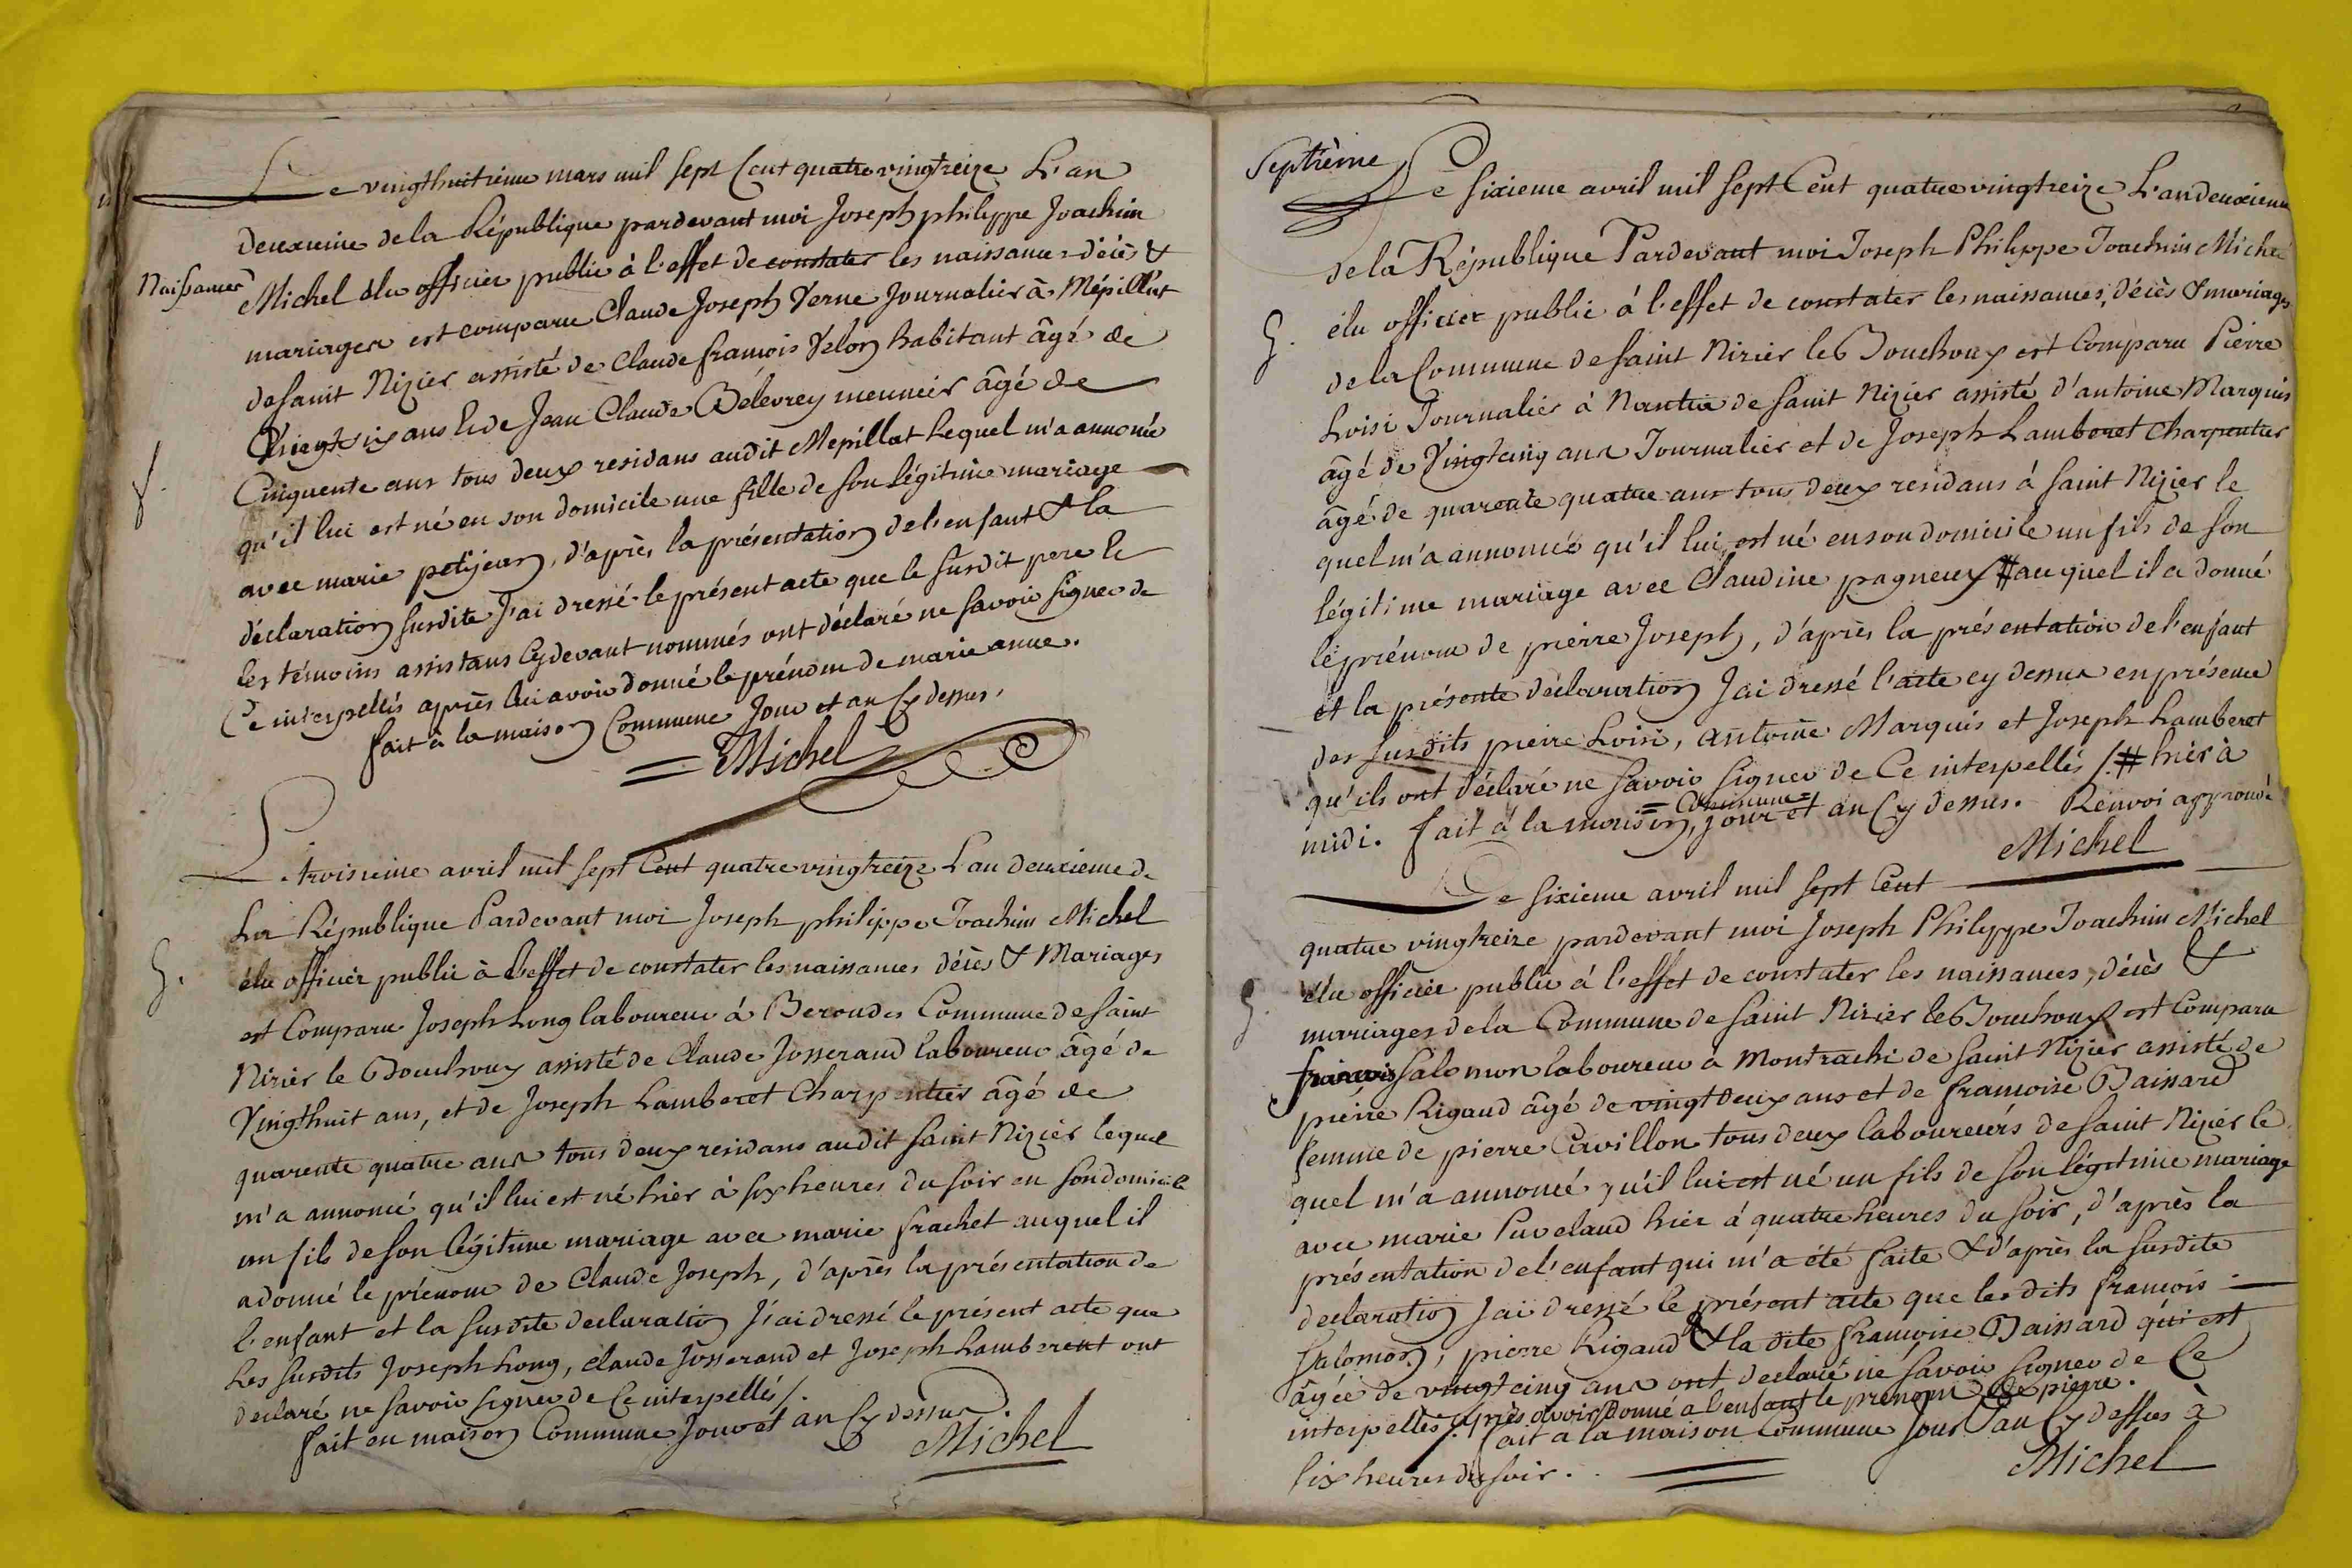 Le vingthuitieme mars mil sept Cent quatre vingtreize L'an
deuxieme de la République pardevant moi Joseph philippe Joachim
Naissances
Michel élu officier public à l'effet de constater les naissances décès &
mariages est comparu Claude Joseph Verne Journalier à Mépillat
de Saint Nizier assisté de Claude francois Velon habitant âgé de
Vingt six ans & de Jean Claude Bélevrey meunier âgé de
Cinquente ans tous deux residans audit Mepillat Lequel m'a annoncé
qu'il lui est né en son domicile une fille de son légitime mariage
avec marie petijean, d'après la présentation de l'enfant & la
déclaration susdite J'ai dressé le présent acte que le susdit pere &
les témoins assistans Cydevant nommés ont déclaré ne savoir signer de
Ce interpellés après lui avoir donné le prénom de marie anne.
fait à la maison Commune Jour et an Cy dessus.
Michel
Le troisieme avril mil sept Cent quatre vingtreize L'an deuxieme de
La République Pardevant moi Joseph philippe Joachim Michel
G.
élu officier public à l'effet de constater les naissances décès & Mariages
est Comparu Joseph Long laboureur à Beroudes Commune de Saint
Nizier le Bouchoux assisté de Claude Josserand laboureur âgé de
Vingthuit ans, et de Joseph Lamberet Charpentier âgé de
quarente quatre ans tous deux residans audit Saint Nizier lequel
m'a annoncé qu'il lui est né hier à six heures du soir en son domicile
un fils de son légitime mariage avec marie frachet auquel il
a donné le prénom de Claude Joseph, d'après la présentation de
l'enfant et la susdite declaration J'ai dressé le présent acte que
Les susdits Joseph Long, Claude Josserand et Joseph Lamberent ont
declaré ne savoir signer de Ce interpellés /.
fait en maison Commune Jour et an Cy dessus.
Michel
Septième
Le sixieme avril mil sept Cent quatre vingtreize L'an deuxieme
de la République Pardevant moi Joseph Philippe Joachim Michel
G.
élu officier public à l'effet de constater les naissances, décès & mariages
de la Commune de Saint Nizier le Bouchoux est Comparu Pierre
Loisi Journalier à Nantua de Saint Nizier assisté d'antoine Marquis
âgé de Vingtcinq ans Journalier et de Joseph Lamberet Charpentier
âgé de quarente quatre ans tous deux residans à Saint Nizier le
quel m'a annoncé qu'il lui est né en son domicile un fils de son
légitime mariage avec Claudine pagneux # auquel il a donné
le prénom de pierre Joseph, d'après la présentation de l'enfant
et la présente déclaration J'ai dressé l'acte cy dessus en présence
des susdits pierre Loisi, antoine Marquis et Joseph Lamberet
qu'ils ont déclaré ne savoir signer de Ce interpellés /. # hier à
= Commune =
midi. fait à la maison, jour et an Cy dessus. Renvoi approuvé
Michel
Le sixieme avril mil sept Cent
quatre vingtreize pardevant moi Joseph Philippe Joachim Michel
G.
élu officier public à l'effet de constater les naissances, décès &
mariages de la Commune de Saint Nizier le Bouchoux est Comparu
francois Salomon laboureur a Montrachi de Saint Nizier assisté de
pierre Rigaud âgé de vingt deux ans et de francoise Baissard
femme de pierre Cavillon tous deux laboureurs de Saint Nizier le
quel m'a annoncé qu'il lui est né un fils de son légitime mariage
avec marie Puveland hier à quatre heures du soir, d'après la
présentation de l'enfant qui m'a été faite & d'après la susdite
declaration J'ai dressé le présent acte que les dits francois
Salomon, pierre Rigaud & la dite francoise Baissard qui est
âgée de vingt cinq ans ont declaré ne savoir signer de Ce
interpellés. après avoir donné a l'enfant le prenom de pierre.
fait a la maison Commune Jour & an Cy dessus à
six heures du soir.
Michel